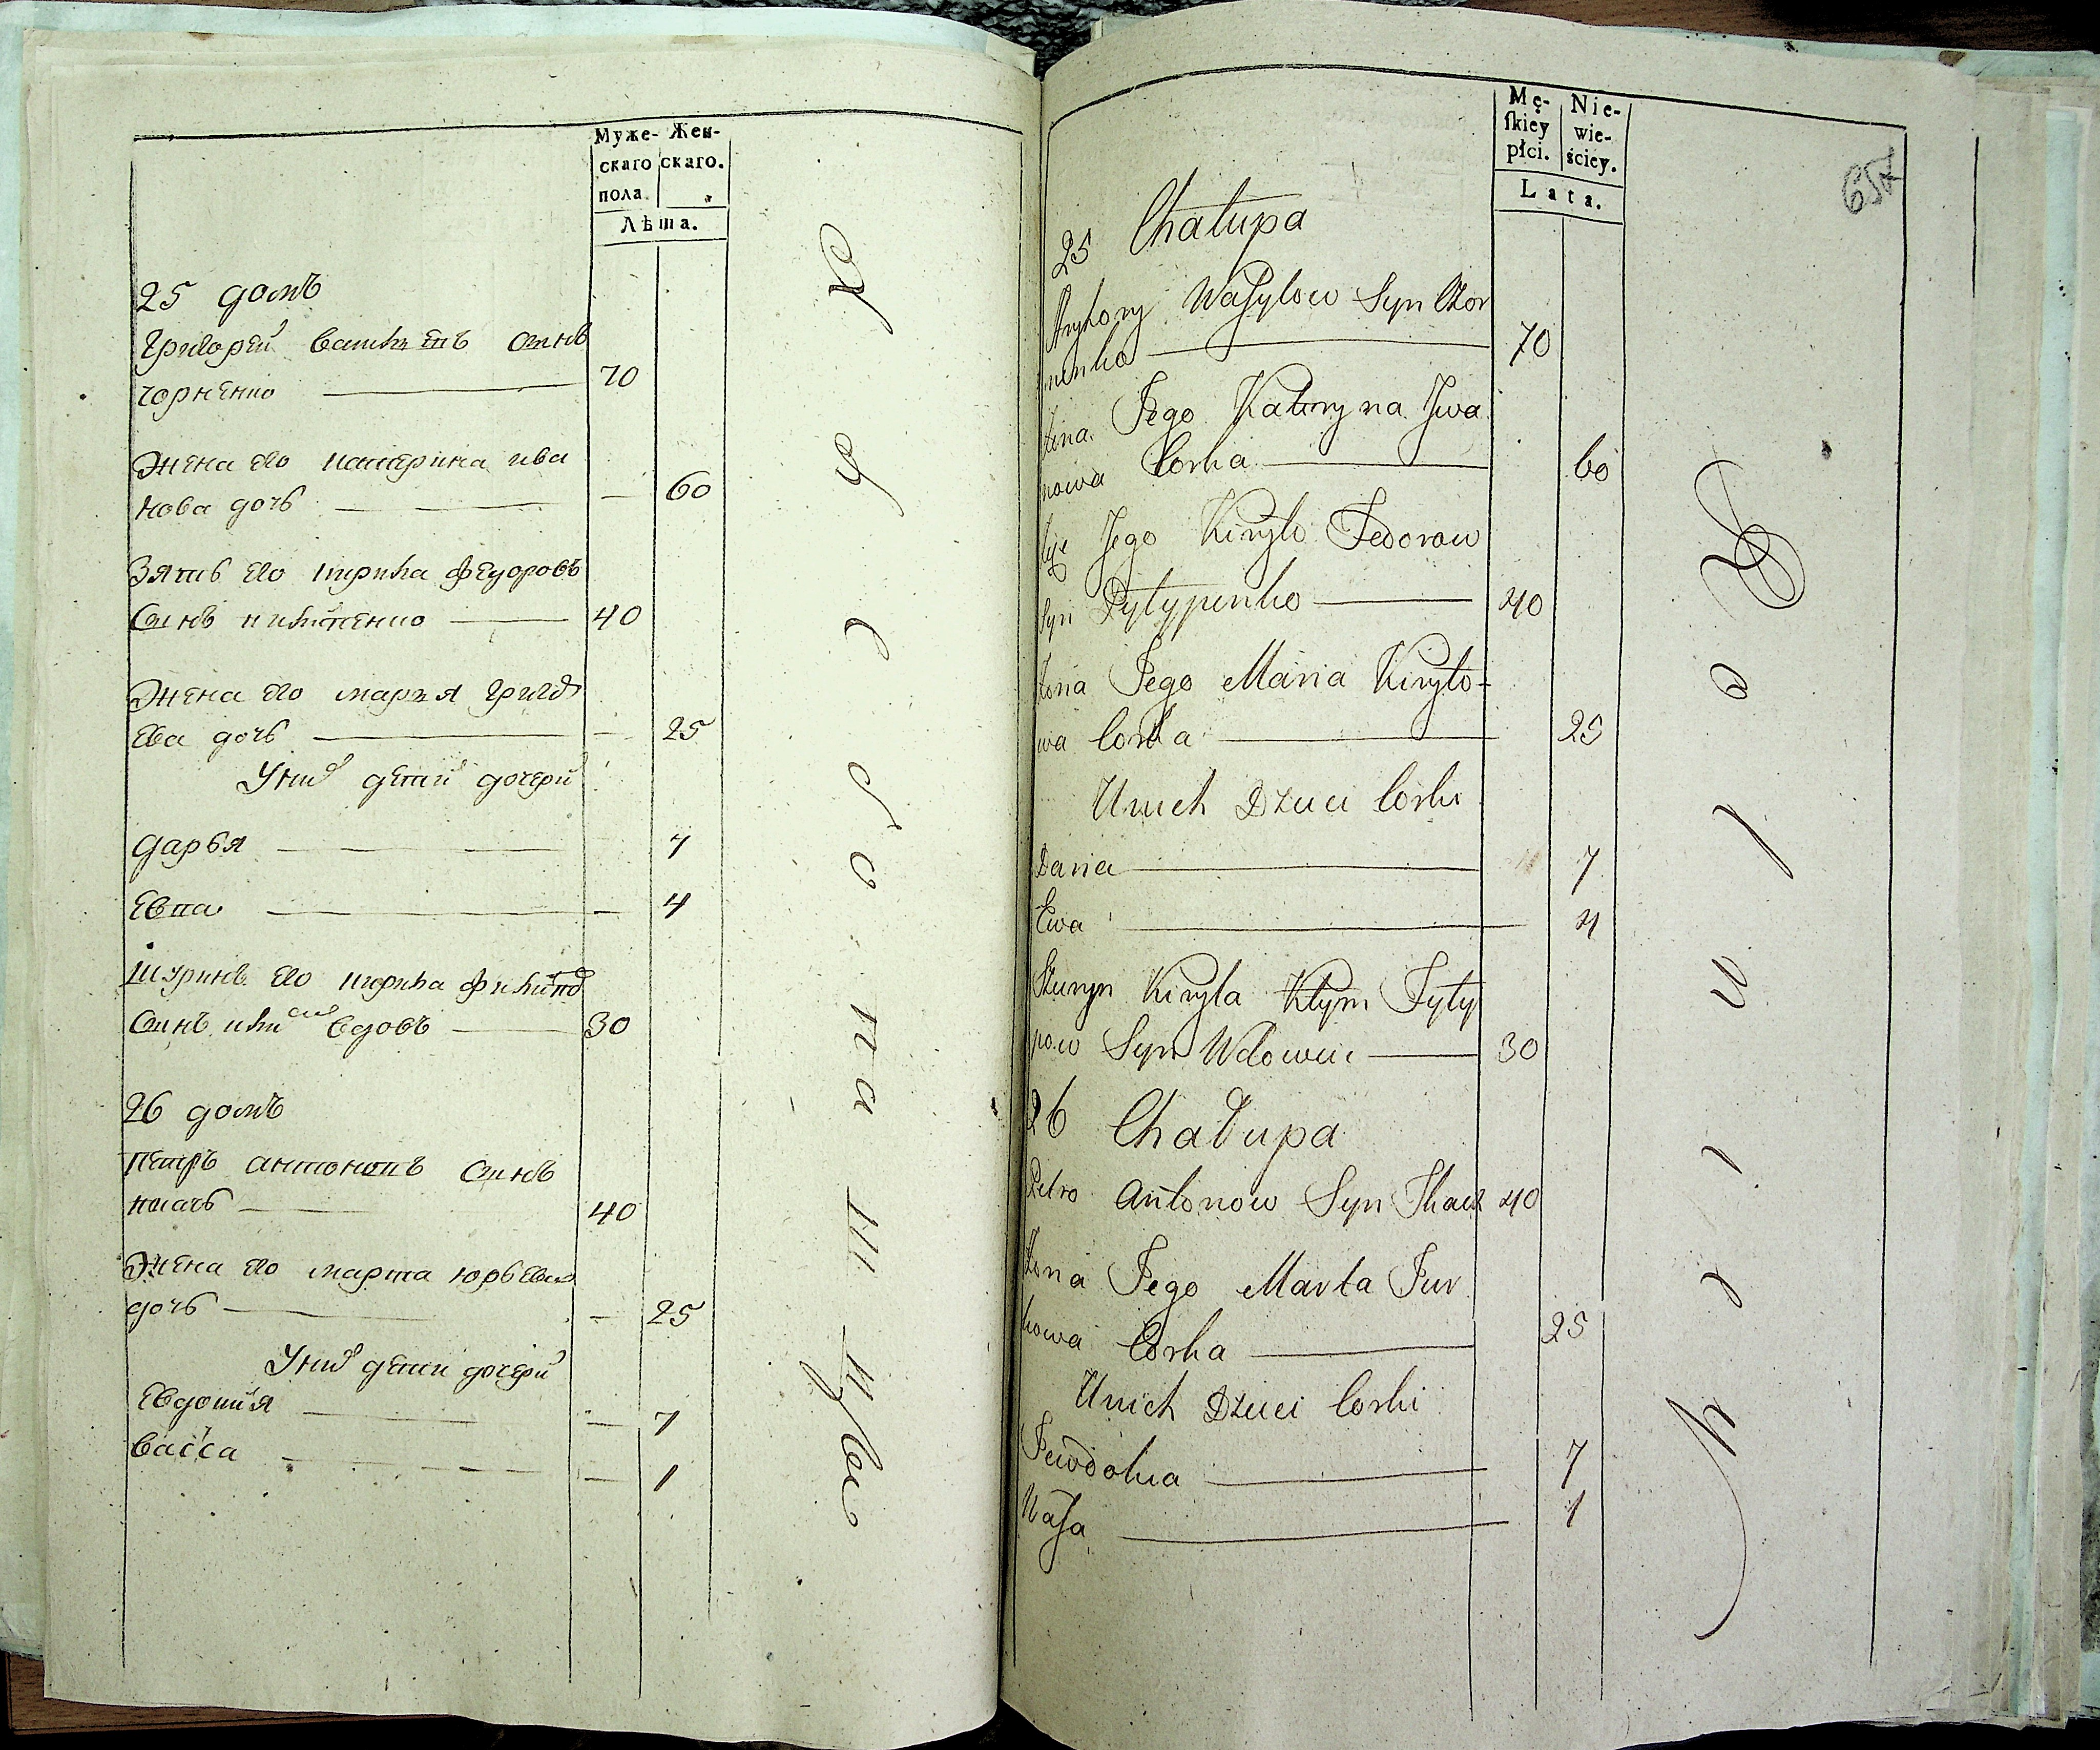 Муже- Жен-
скаго скаго.
пола.
Лѣта.
25 домъ
Григорей Василевъ сынъ
чорненко 70
Жена его катерина ива
нова дочь 60
Зять его кирила федоровъ
сынъ пилипенко 40
Жена его мария григо
ева дочь 25
У них детей дочерей
дарья 7
Евпа 4
Шуринъ его кирила филипо
сынъ вдовъ 30
26 домъ
петръ антоновъ сынъ
ткачь 40
Жена его марта юрьева
дочь 25
У них детей дочерей
Евдокия 7
васса 1
Mę- Nie-
ſkiey wie-
płci. ściey.
Lata.
25 Chałupa
Hryhory Wasylow Syn Czor
nenko 70
żona Jego Kateryna Iwa
nowa Corka 60
Jego Kiryło Fedorow
Syn Pyłypenko 40
żona Jego Maria Kiryło-
wa Corka 25
Unich Dzieci Corki
Daria 7
Ewa 4
Szuryn Kiryła Kłym Fyły
pow Syn Wdowiec 30
26 Chałupa
Petro Antonow Syn Tkacz 40
żona Jego Marta Jur
kowa Corka 25
Unich Dzieci Corki
Jewdokia 7
Wasa 1